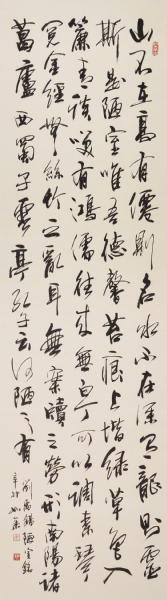 山不在高有僊則名水不在深有龍則靈
斯是陋室唯吾德馨苔痕上堦綠草色入
簾青談笑有鴻儒往來無白丁可以調素琴
閱金經無絲竹之亂耳無案牘之勞形南陽諸
葛廬西蜀子雲亭孔子云何陋之有
劉禹錫陋室銘
辛卯